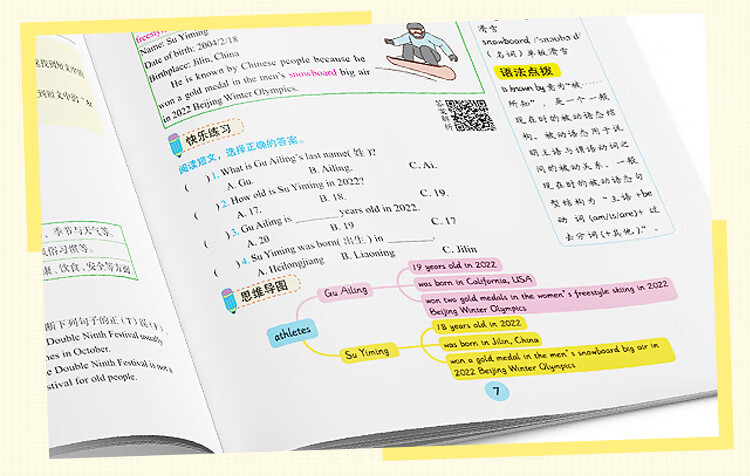 找到短文中的
到短文中的“
、季节与天气等。
俗习惯等。
、饮食、安全等方面
断下列句子的正(T)误(F)。
Double Ninth Festival usually
es in October.
e Double Ninth Festival is not a
stival for old people.
freestyle
Name: Su Yiming
Date of birth: 2004/2/18
Birthplace: Jilin, China
He is known by Chinese people because he
won a gold medal in the men's snowboard big air
in 2022 Beijing Winter Olympics.
答案解析
快乐练习
阅读短文，选择正确的答案。
( )1. What is Gu Ailing's last name(姓)?
A. Gu. B. Ailing. C. Ai.
( )2. How old is Su Yiming in 2022?
A. 17. B. 18. C. 19.
( )3. Gu Ailing is ______ years old in 2022.
A. 20 B. 19 C. 17
( )4. Su Yiming was born(出生) in ______.
A. Heilongjiang B. Liaoning C. Jilin
思维导图
athletes
Gu Ailing
19 years old in 2022
was born in California, USA
won two gold medals in the women's freestyle skiing in 2022
Beijing Winter Olympics
Su Yiming
18 years old in 2022
was born in Jilin, China
won a gold medal in the men's snowboard big air in
2022 Beijing Winter Olympics
7
滑雪
snowboard /ˈsnəʊbɔːd/
(名词)单板滑雪
语法点拨
is known by意为“被……
所知”，是一个一般
现在时的被动语态结
构。被动语态用于说
明主语与谓语动词之
间的被动关系。一般
现在时的被动语态句
型结构为“主语+be
动词(am/is/are)+过
去分词(+其他)。”。